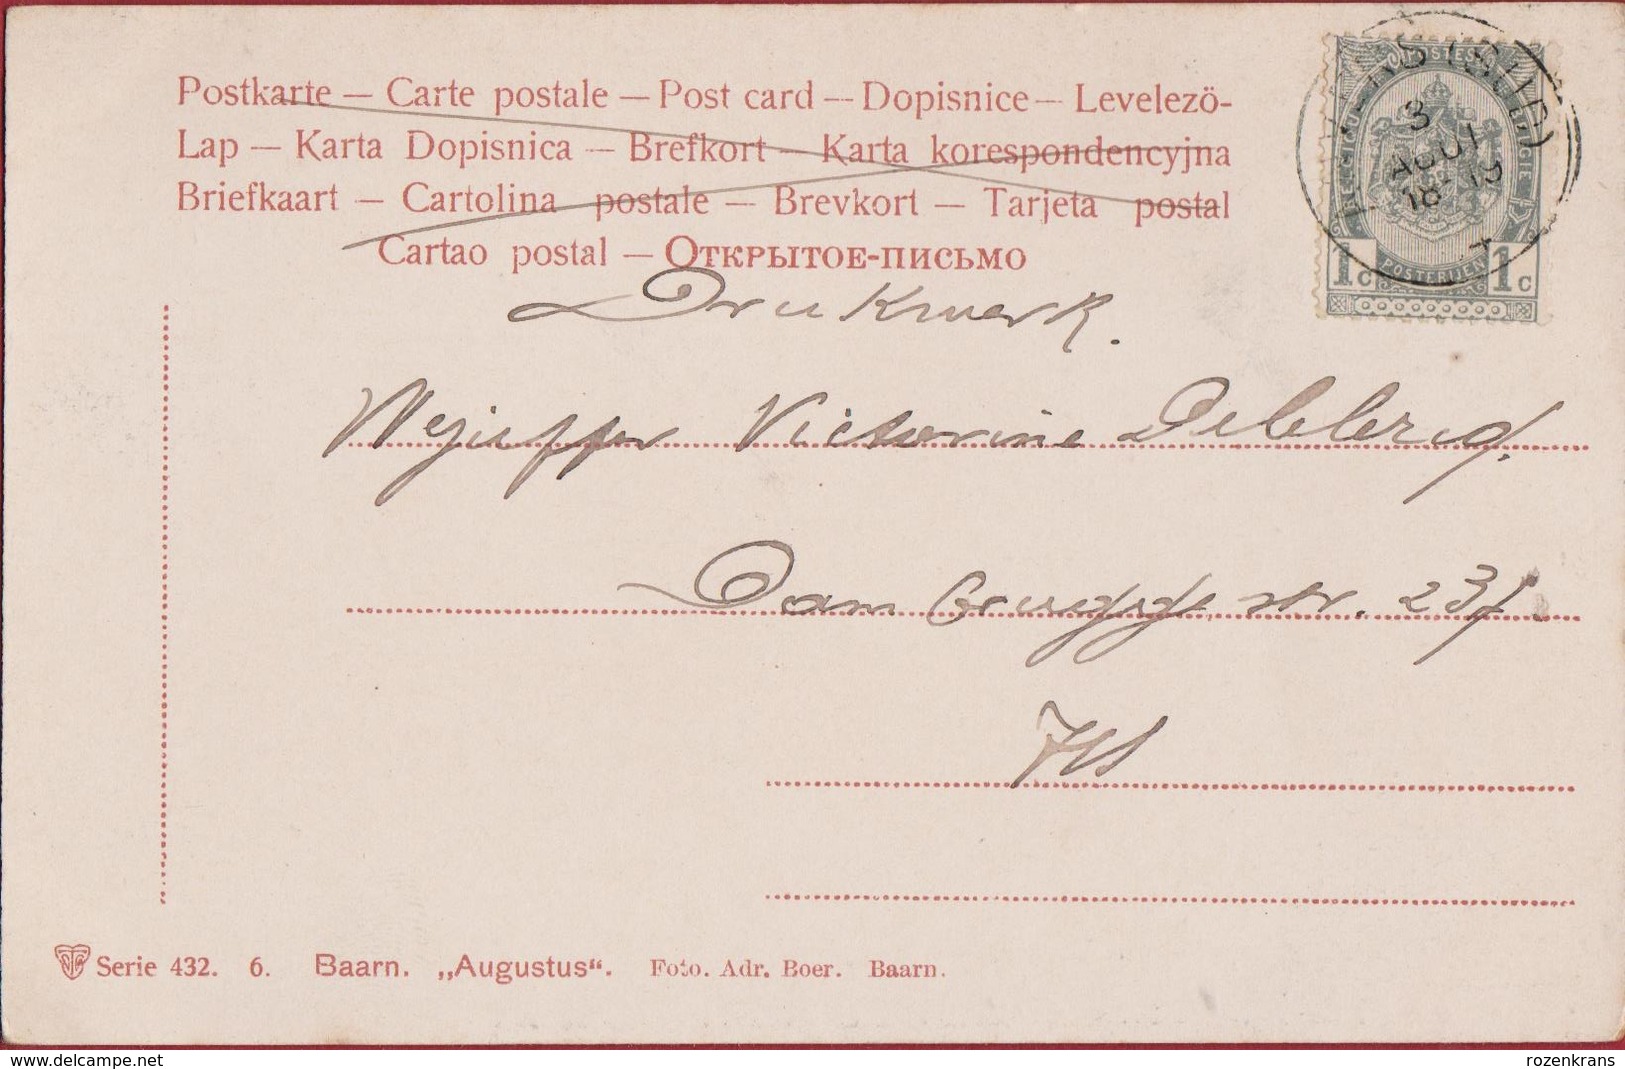 Postkarte — Carte postale — Post card — Dopisnice — Levelezö-
Lap — Karta Dopisnica — Brefkort — Karta korespondencyjna
Briefkaart — Cartolina postale — Brevkort — Tarjeta postal
Cartao postal — Открытое-письмо
Drukwerk.
Mejuffer Victorine
Dam Bruggestr. 23
POSTES
POSTERIJEN
1c 1c
(SUD)
3
AOUT
18-19
Serie 432. 6. Baarn. „Augustus“. Foto. Adr. Boer. Baarn.
delcampe.net
rozenkrans